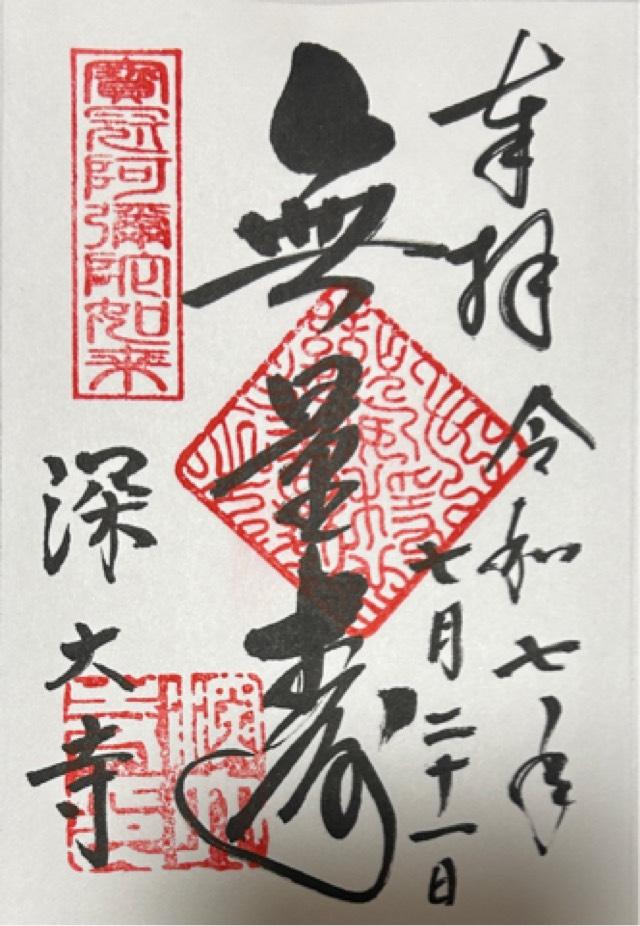 奉拝 令和七年
七月二十一日
無量寿
寶冠阿彌陀如来
深大寺